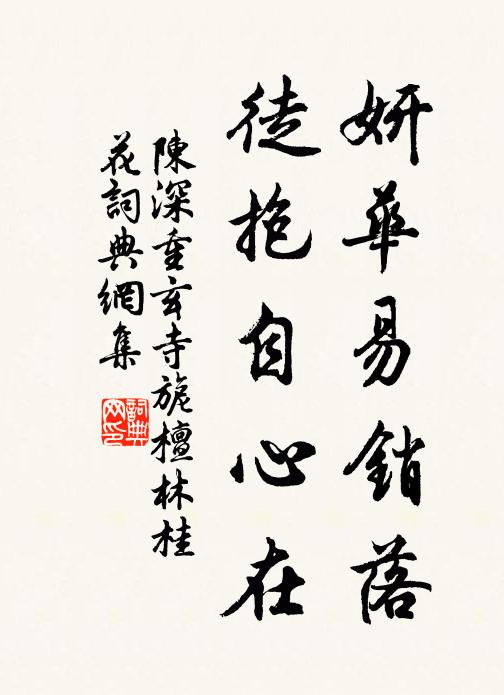 妍華易銷落
徒抱自心在
陳深重玄寺旃檀林桂
花詞典網集
詞典
网印